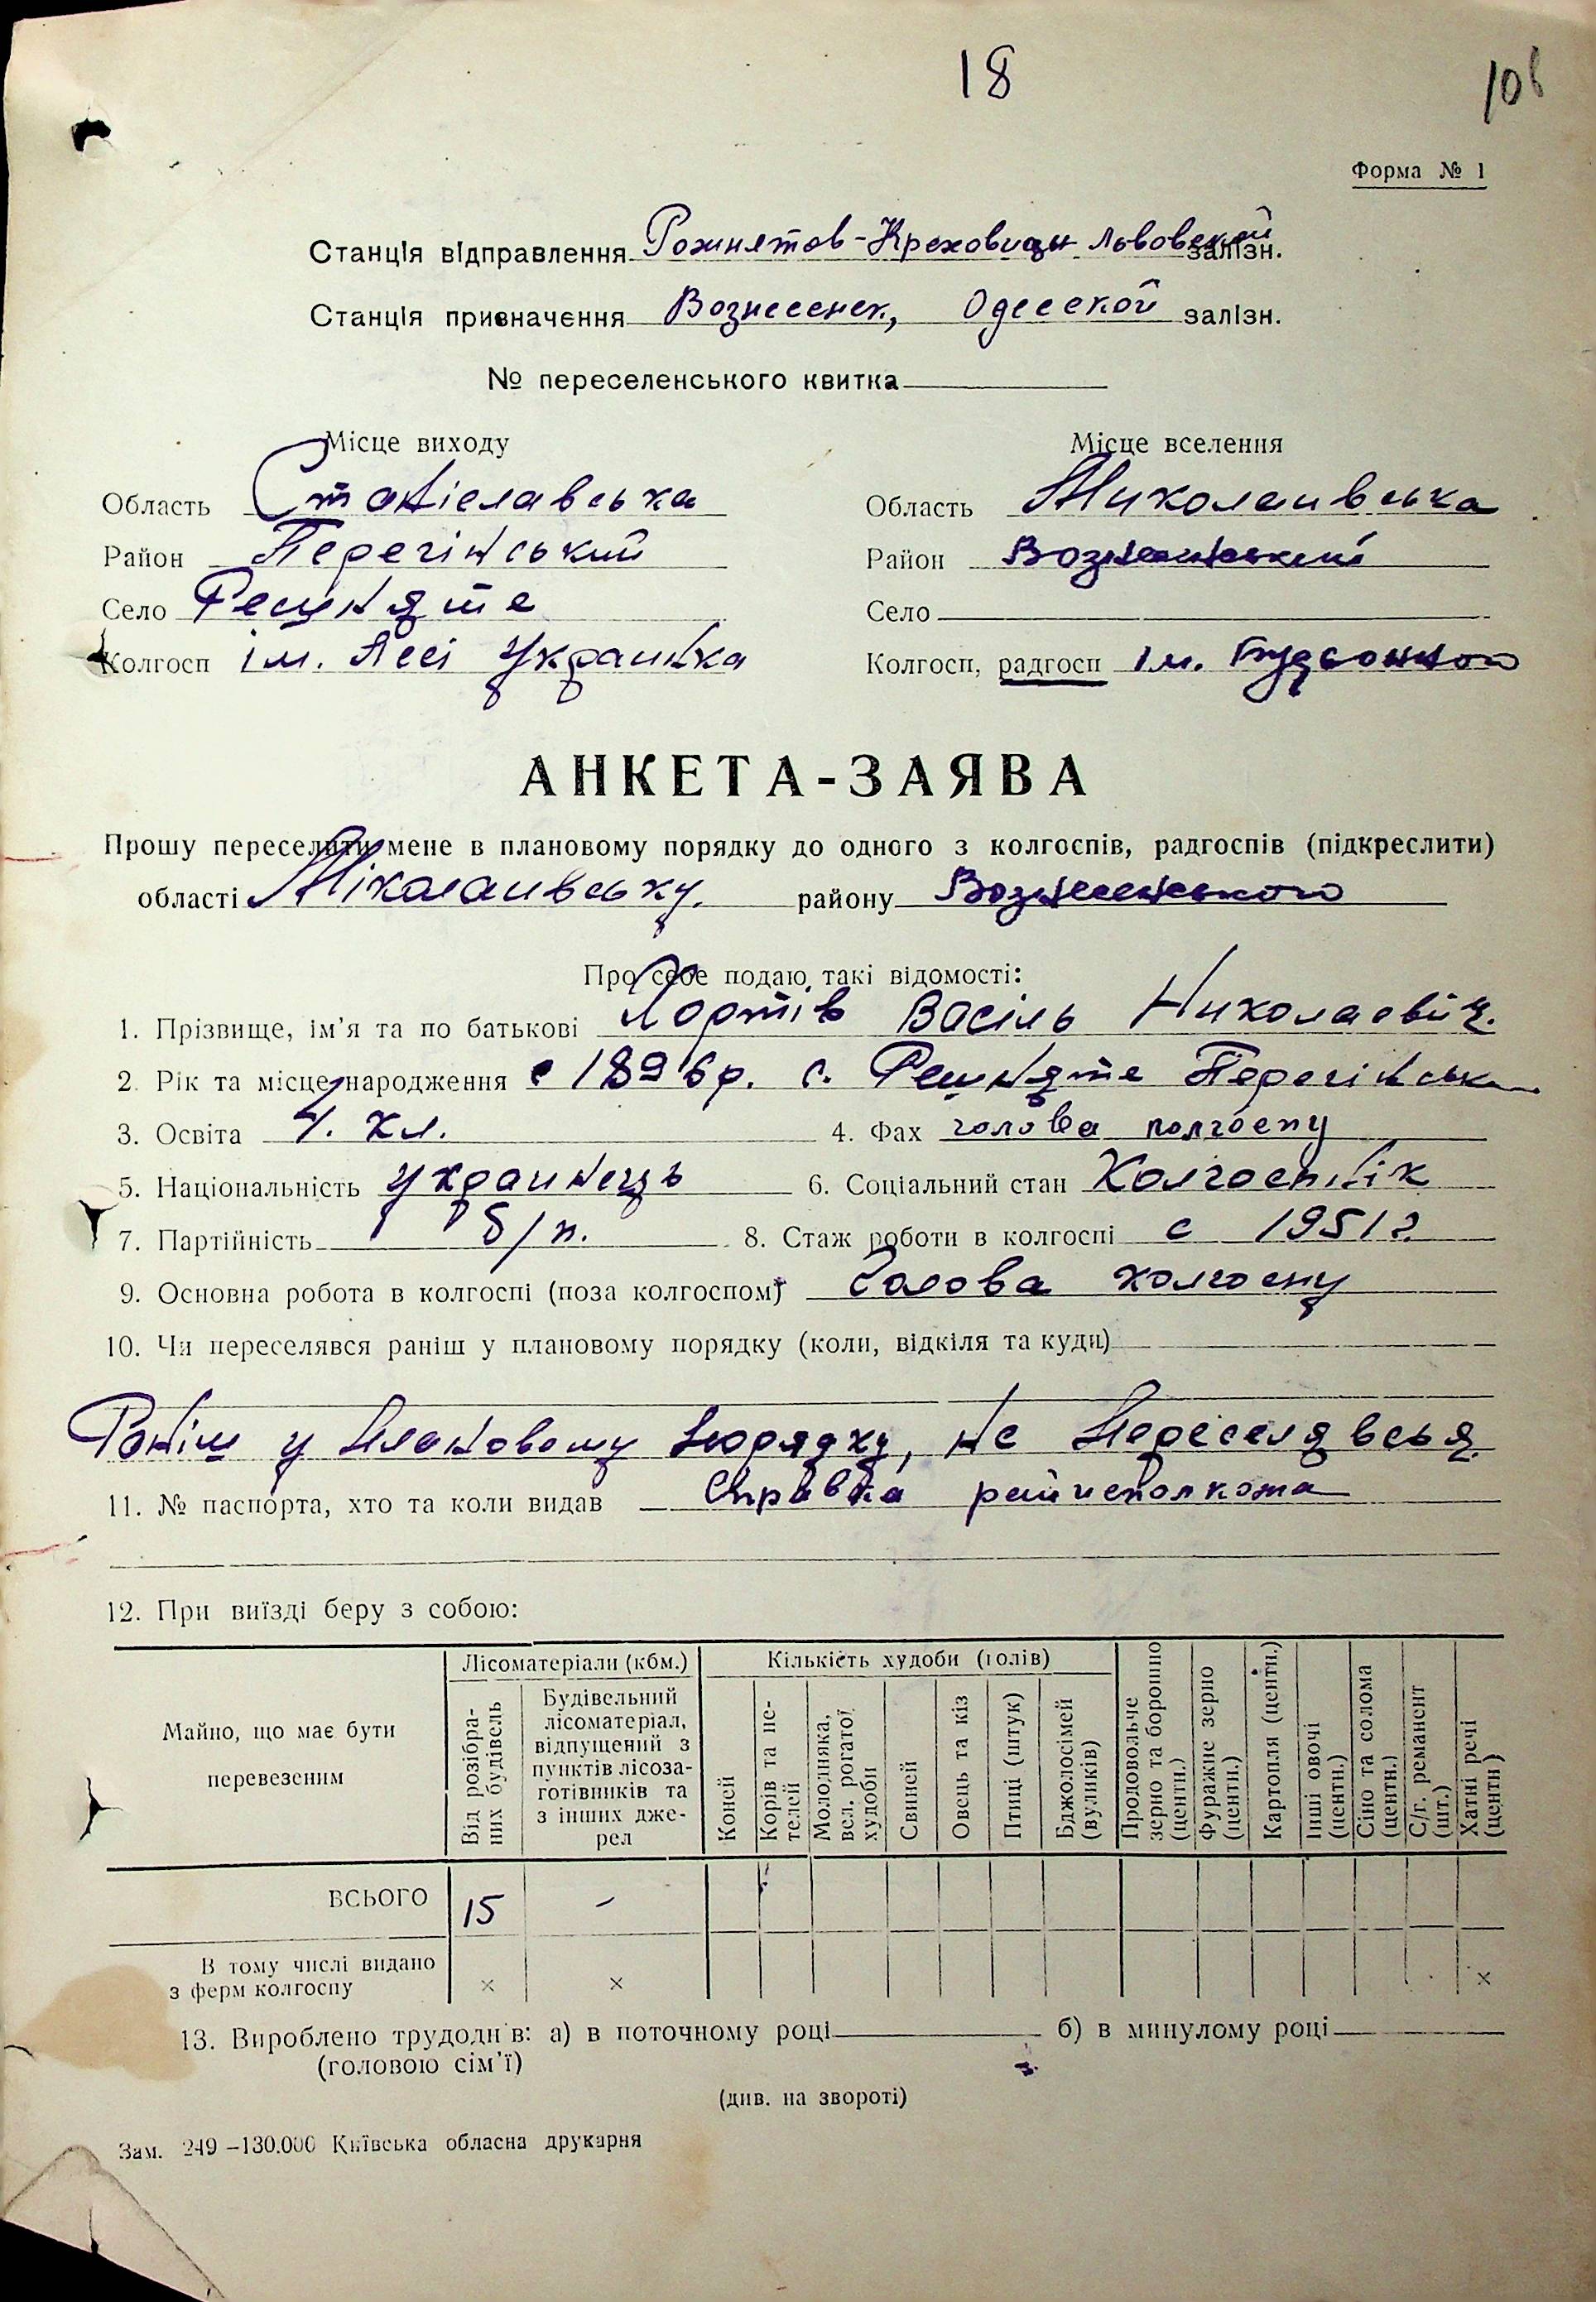 18
106
Форма № 1
Станція відправлення Рожнятов-Креховицы Львовской залізн.
Станція призначення Вознесенск, Одесской залізн.
№ переселенського квитка
Місце виходу Місце вселення
Область Станіславська Область Миколаивська
Район Перегінський Район Вознесенський
Село Село
Колгосп ім. Лесі Украинка Колгосп, радгосп ім. Будьонного
АНКЕТА-ЗАЯВА
Прошу переселити мене в плановому порядку до одного з колгоспів, радгоспів (підкреслити)
області Міколаивську. району Вознесенського
Про себе подаю такі відомості:
1. Прізвище, ім'я та по батькові Василь Николаевіч.
2. Рік та місце народження с 1896 р. с. Перегінськ
3. Освіта 4. кл. 4. Фах голова колгоспу
5. Національність Украинець 6. Соціальний стан Колгоспнік
7. Партійність б/п. 8. Стаж роботи в колгоспі с 1951 г
9. Основна робота в колгоспі (поза колгоспом) Голова колгоспу
10. Чи переселявся раніш у плановому порядку (коли, відкіля та куди)
Раніш у плановому порядку, не переселявсья.
11. № паспорта, хто та коли видав Справка райисполкома
12. При виїзді беру з собою:
Майно, що має бути перевезеним
Лісоматеріали (кбм.)
Від розібраних будівель
Будівельний лісоматеріал, відпущений з пунктів лісозаготівників та з інших джерел
Кількість худоби (голів)
Коней
Корів та нетелей
Молодняка, вел. рогатої худоби
Свиней
Овець та кіз
Птиці (штук)
Бджолосімей (вуликів)
Продовольче зерно та борошно (центн.)
Фуражне зерно (центн.)
Картопля (центн.)
Інші овочі (центн.)
Сіно та солома (центн.)
С/г. реманент (шт.)
Хатні речі (центн)
ВСЬОГО 15 –
В тому числі видано з ферм колгоспу × × ×
13. Вироблено трудоднів: а) в поточному році б) в минулому році
(головою сім'ї)
(див. на звороті)
Зам. 249 –130.000 Київська обласна друкарня